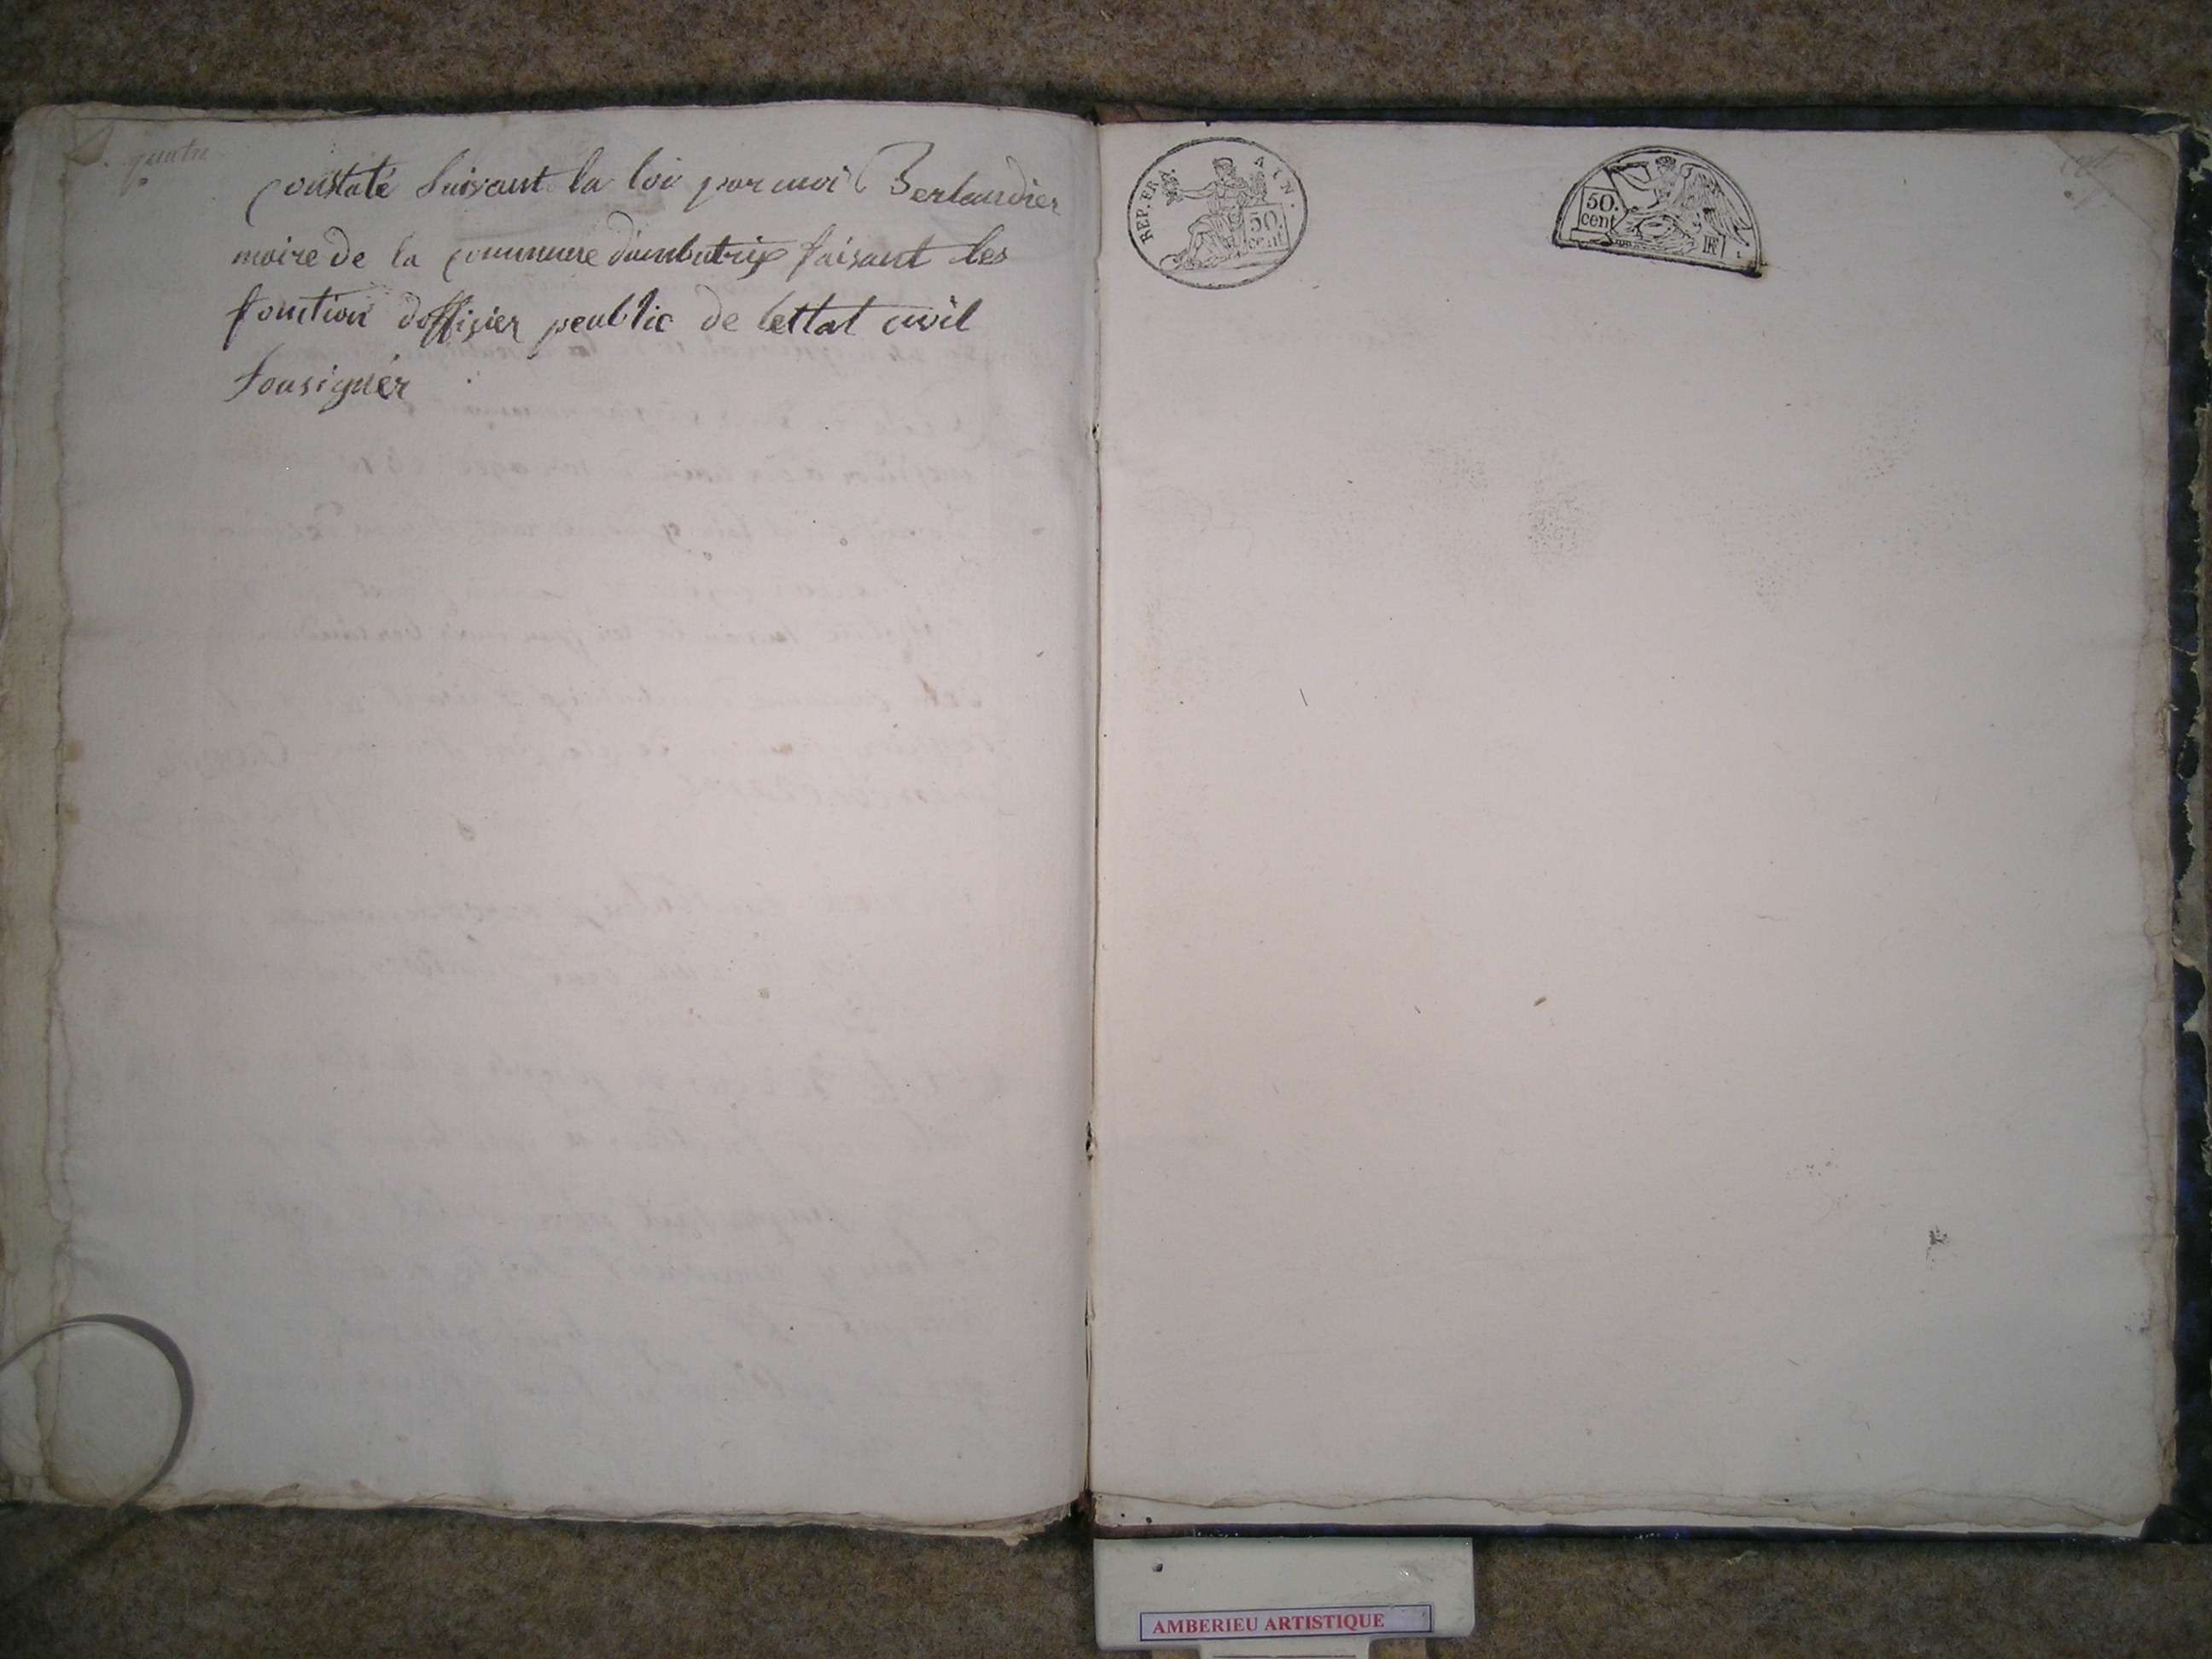 quatre
Constaté Suivant la loi par moi Berlandier
maire de la commune dambutrix faisant les
fonction doffisier peublic de lettat civil
Sousignér
REP. FRA. AIN.
50.
cent
50.
cent
RF
AMBERIEU ARTISTIQUE